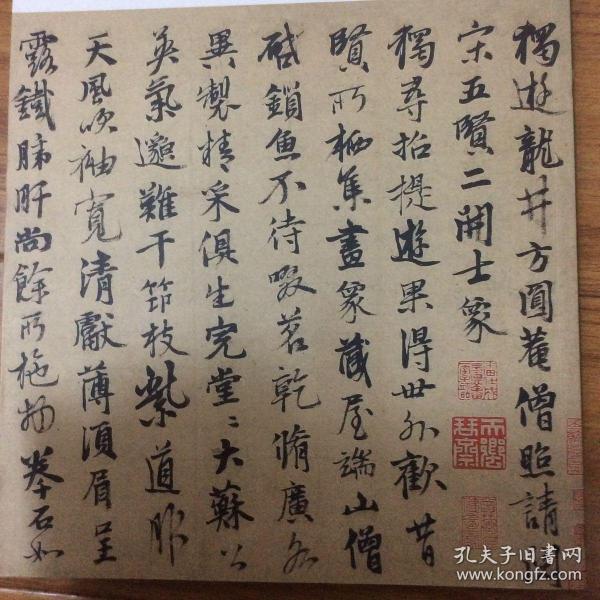 獨遊龍井方圓菴僧照請閱
宋五賢二開士象
獨尋招提遊果得世外歡昔
賢所栖集畫象藏屋端山僧
啟鎖魚不待啜茗乾脩廣各
異製精采俱生完堂〻大蘇公
英氣邈難干筇枝紫道服
天風吹袖寬清獻薄須眉呈
露鐵肺肝尚餘所施物拳石如
孔夫子旧書网
www.kongfz.com